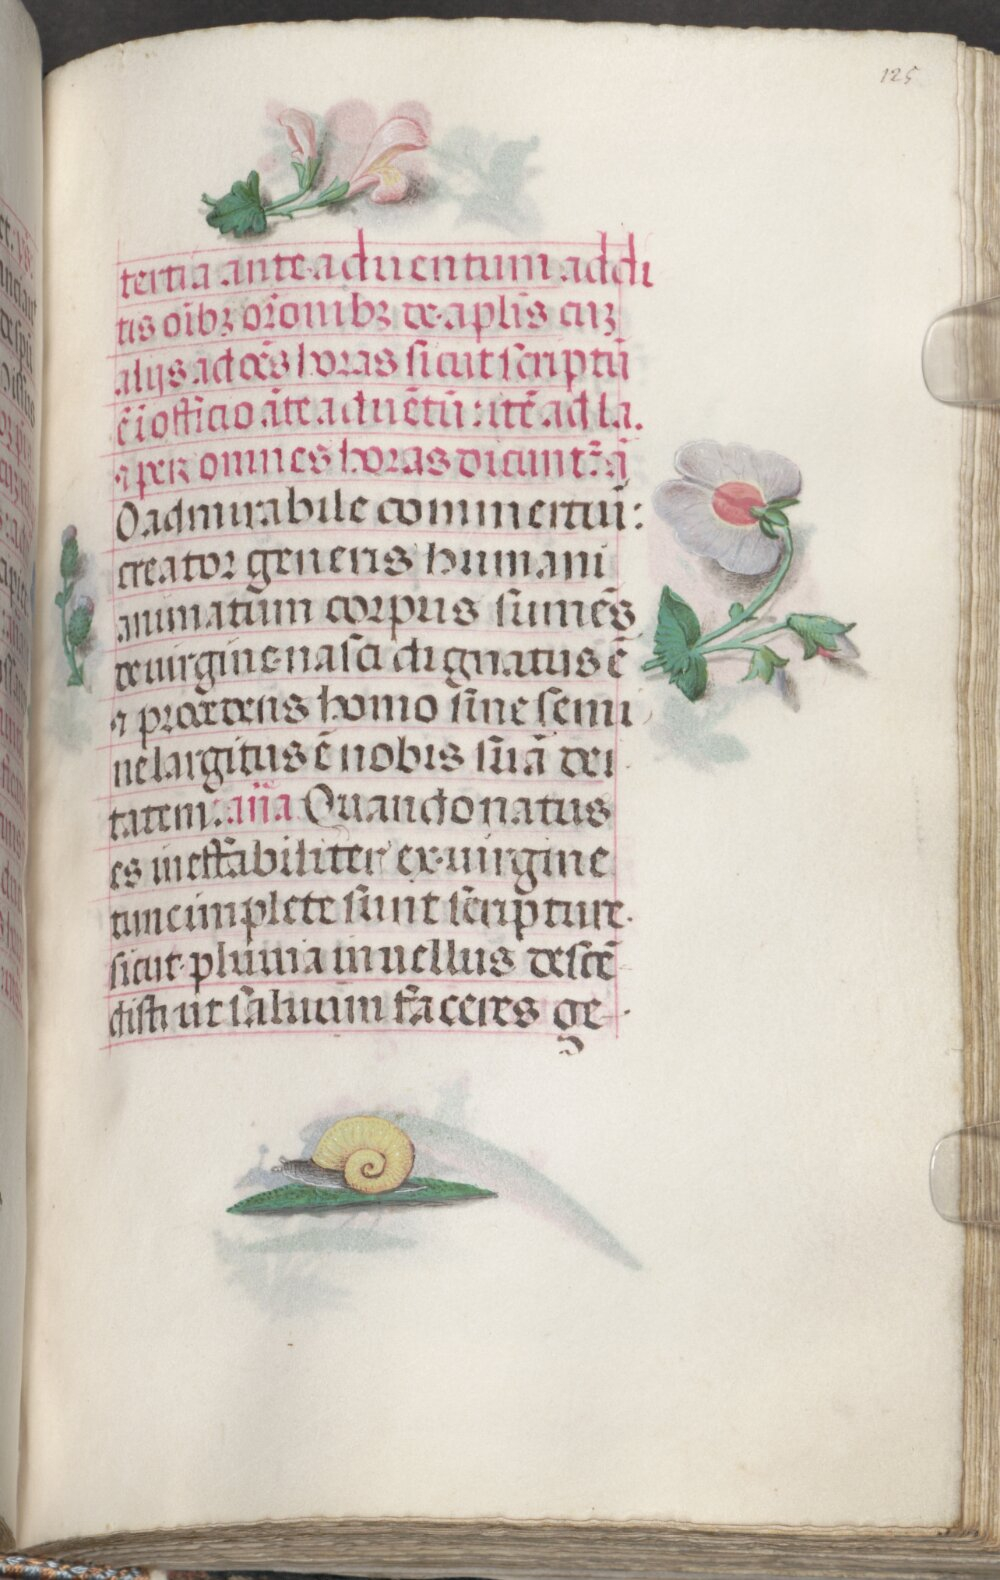 125
tertia ante aduentum addi
tis oībꝫ orōnibꝫ de aplīs cuꝫ
alijs ad oēs horas sicut scriptū
ē ī officio āte aduētū: itē ad la.
⁊ per omnes horas dicunt̄: ā
O admirabile commertiū:
creator generis humani
animatum corpus sumēs
de uirgine nasci dignatus ē
⁊ procedens homo sine semi
ne largitus ē nobis suā dei
tatem: aña Quando natus
es ineffabiliter ex uirgine
tunc implete sunt scripture.
sicut pluuia in uellus descē
disti ut saluum faceres ge-